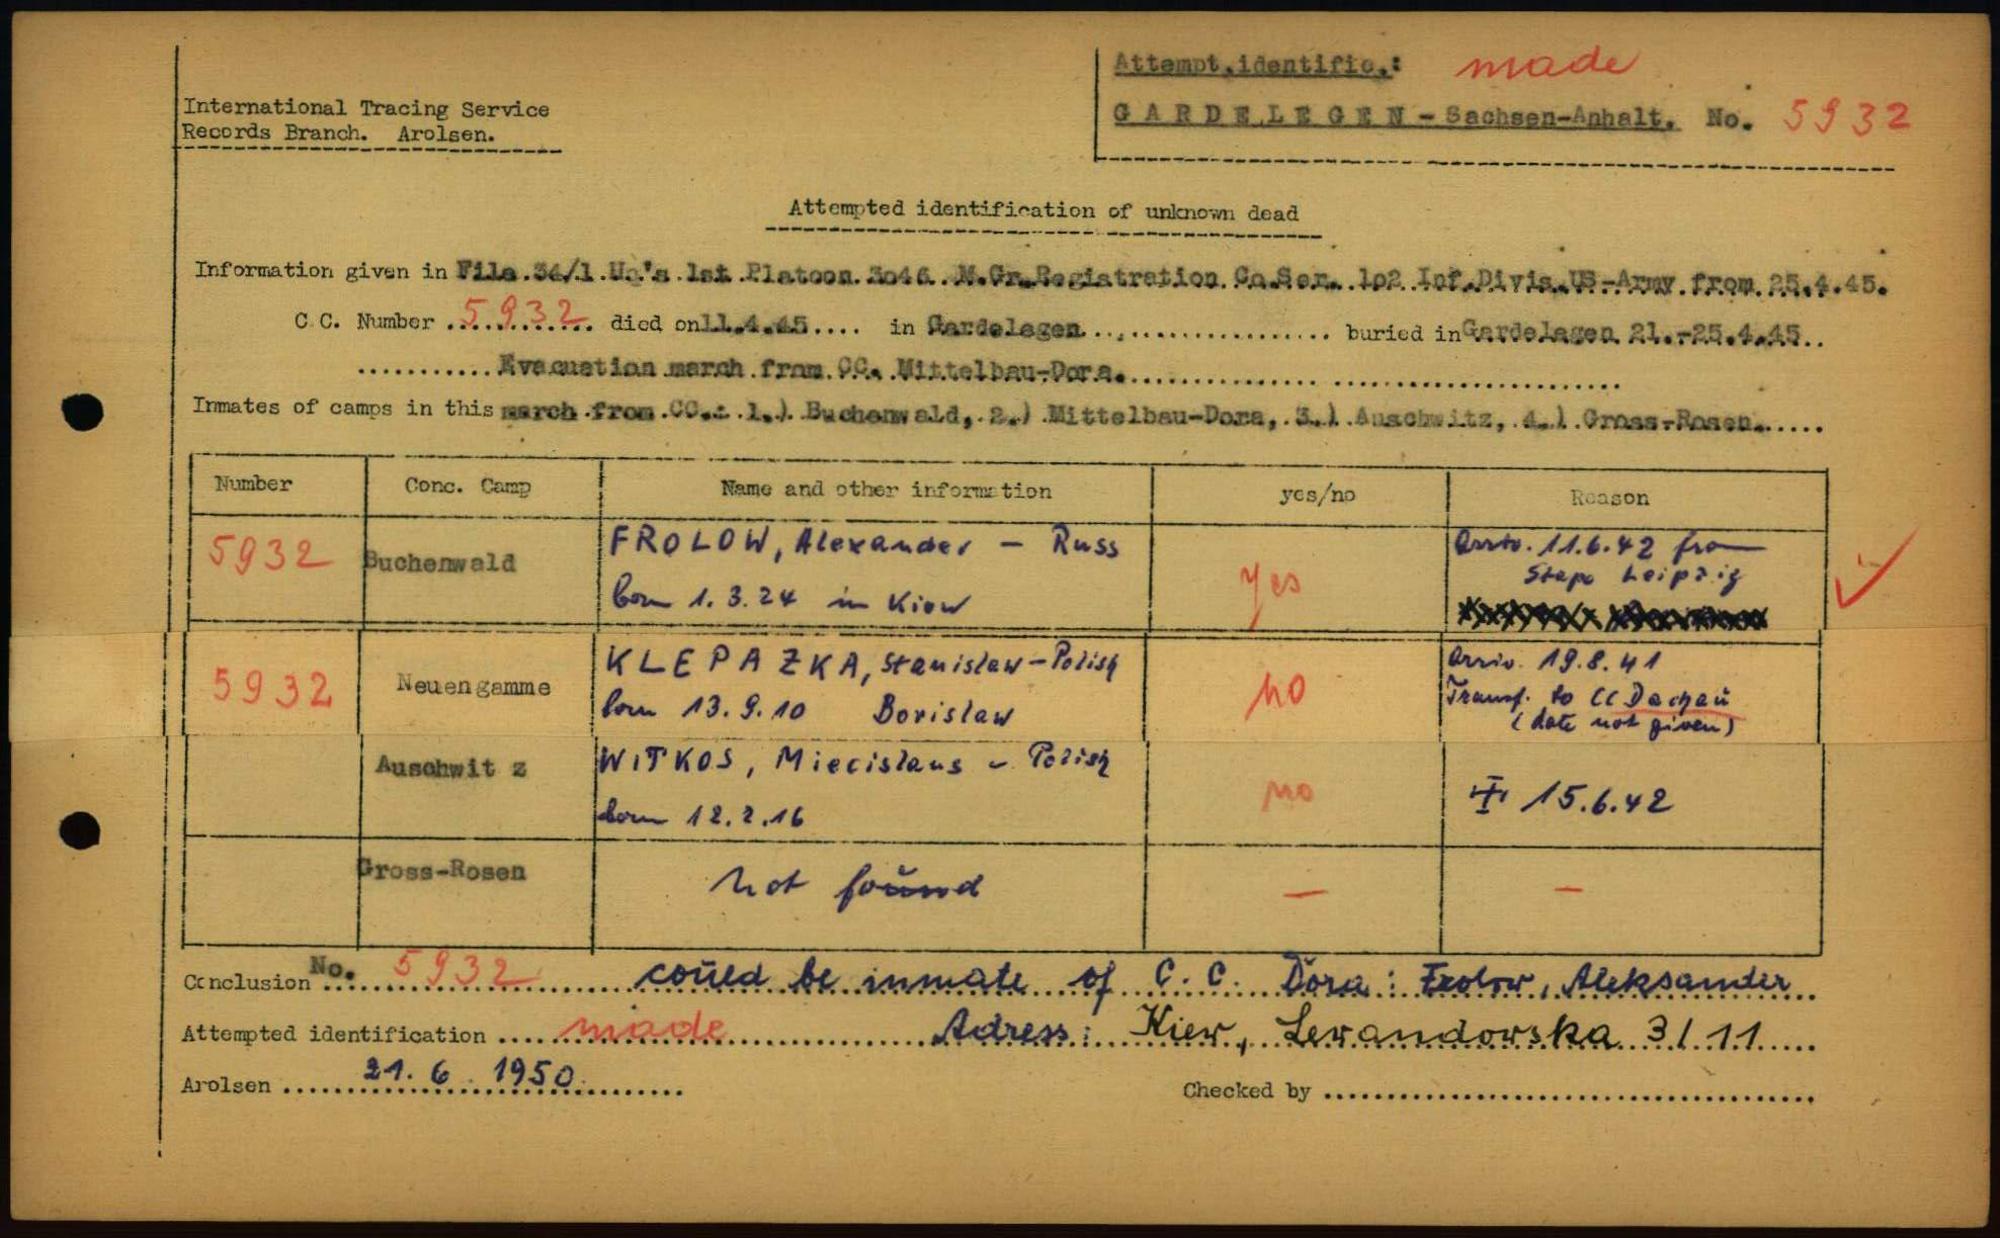 Attempt.identific.: made
International Tracing Service
Records Branch. Arolsen.
GARDELEGEN - Sachsen-Anhalt. No. 5932
Attempted identification of unknown dead
Information given in File 34/1 Uq's 1st Platoon 3046 M.Gr.Registration Co.Ser. 102 Inf.Divis.US-Army from 25.4.45.
C.C. Number 5932 died on 11.4.45 in Gardelegen buried in Gardelegen 21.-25.4.45
Evacuation march from CC. Mittelbau-Dora.
Inmates of camps in this march from CC.: 1.) Buchenwald, 2.) Mittelbau-Dora, 3.) Auschwitz, 4.) Gross-Rosen.
Number Conc. Camp Name and other information yes/no Reason
5932 Buchenwald FROLOW, Alexander - Russ yes Arriv. 11.6.42 from
born 1.3.24 in Kiow Stapo Leipzig
5932 Neuengamme KLEPAZKA, Stanislaw - Polish no Arriv. 19.8.41
born 13.9.10 Borislaw Transf. to CC Dachau
(date not given)
Auschwitz WITKOS, Miecislaus - Polish no
born 12.2.16 15.6.42
Gross-Rosen not found - -
Conclusion No. 5932 could be inmate of C.C. Dora: Frolow, Aleksander
Attempted identification made Adress: Kiew, Lewandowska 3/11
Arolsen 21.6.1950 Checked by